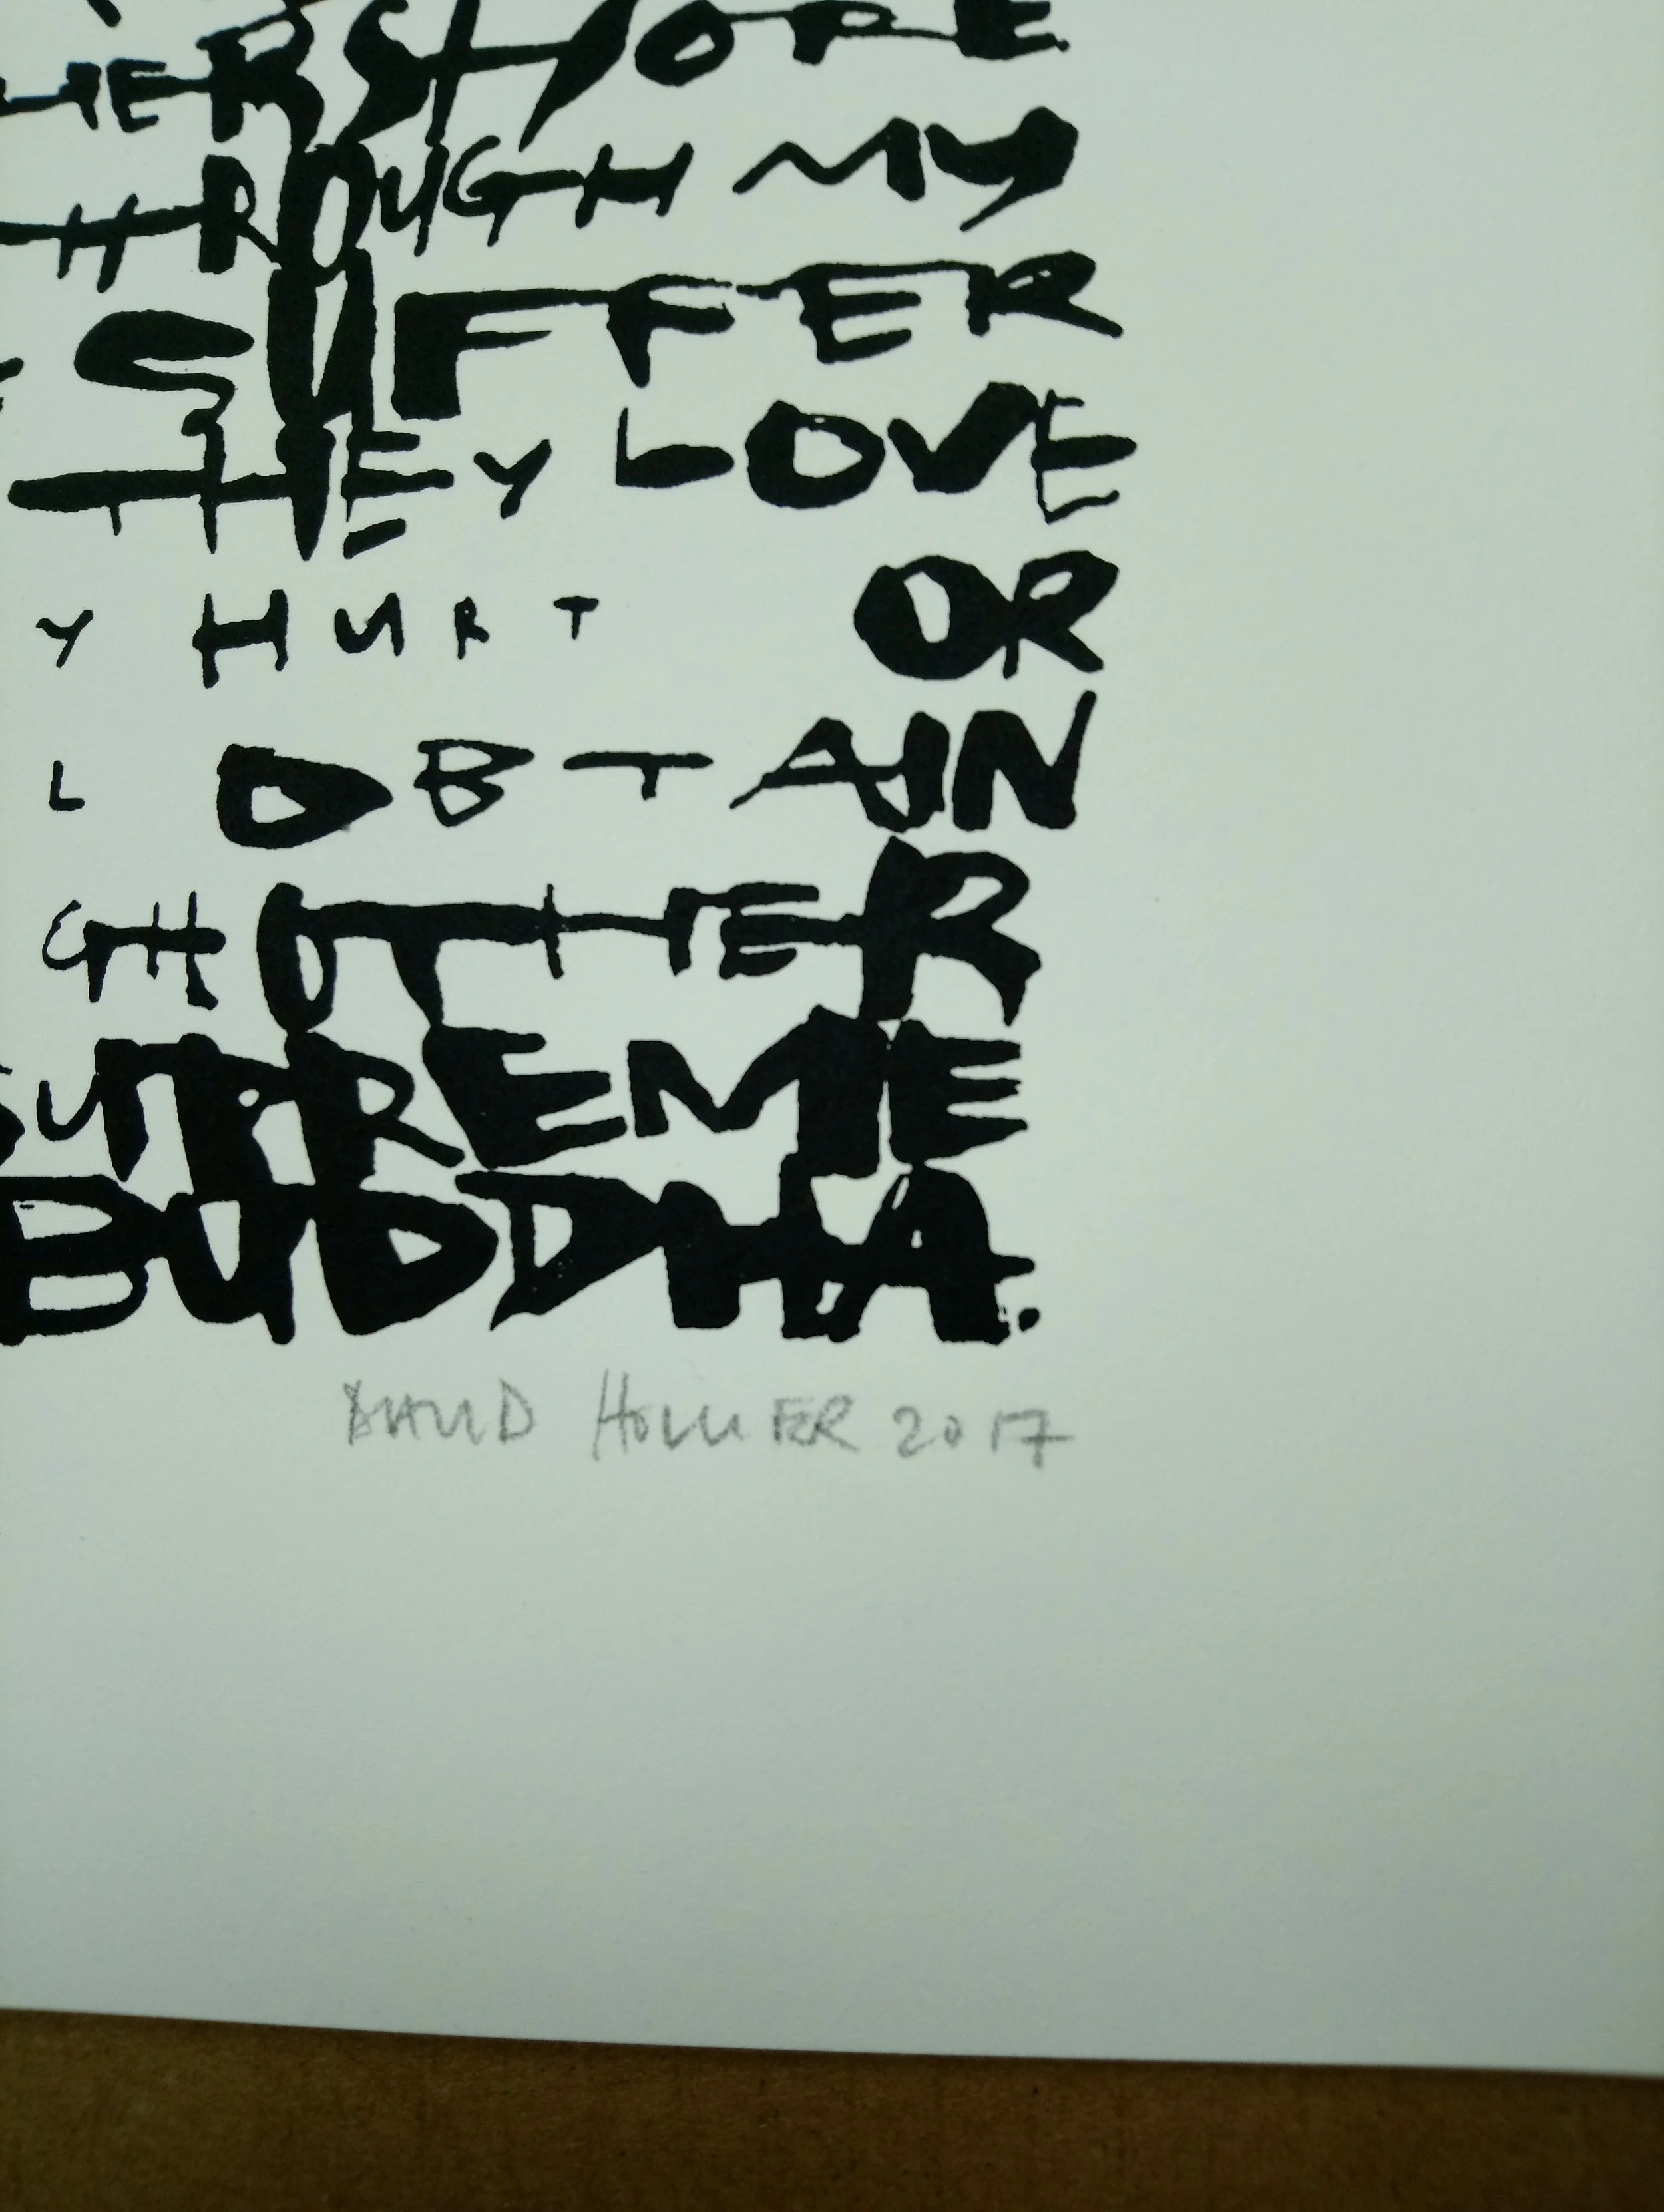 HER SHORE.
THROUGH MY
SUFFER
THEY LOVE
Y HURT OR
L OBTAIN
GH OTHER
SUPREME
BUDDHA.
DAVID HOLLIER 2017